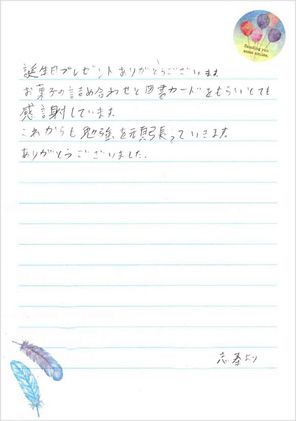 誕生日プレゼントありがとうございます
お菓子の詰め合わせと図書カードをもらいとても
感謝しています。
これからも勉強を頑張っていきます。
ありがとうございました。
より